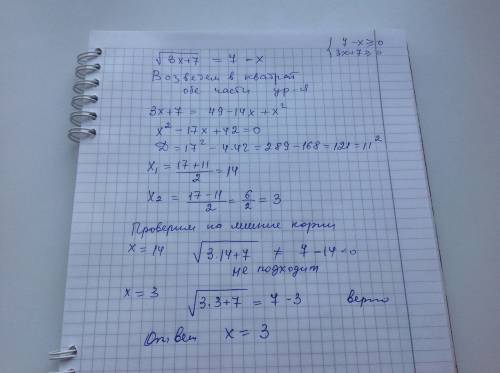 √3x+7 = 7 - x
{ 7 - x ≥ 0
3x+7 ≥ 0
Возведем в квадрат
обе части ур-я
3x+7 = 49-14x+x²
x² - 17x + 42 = 0
D = 17² - 4·42 = 289 - 168 = 121 = 11²
x₁ = (17+11)/2 = 14
x₂ = (17-11)/2 = 6/2 = 3
Проверим на лишние корни
x = 14 √3·14+7 ≠ 7 - 14 < 0
не подходит
x = 3 √3·3+7 = 7 - 3 верно
Ответ x = 3